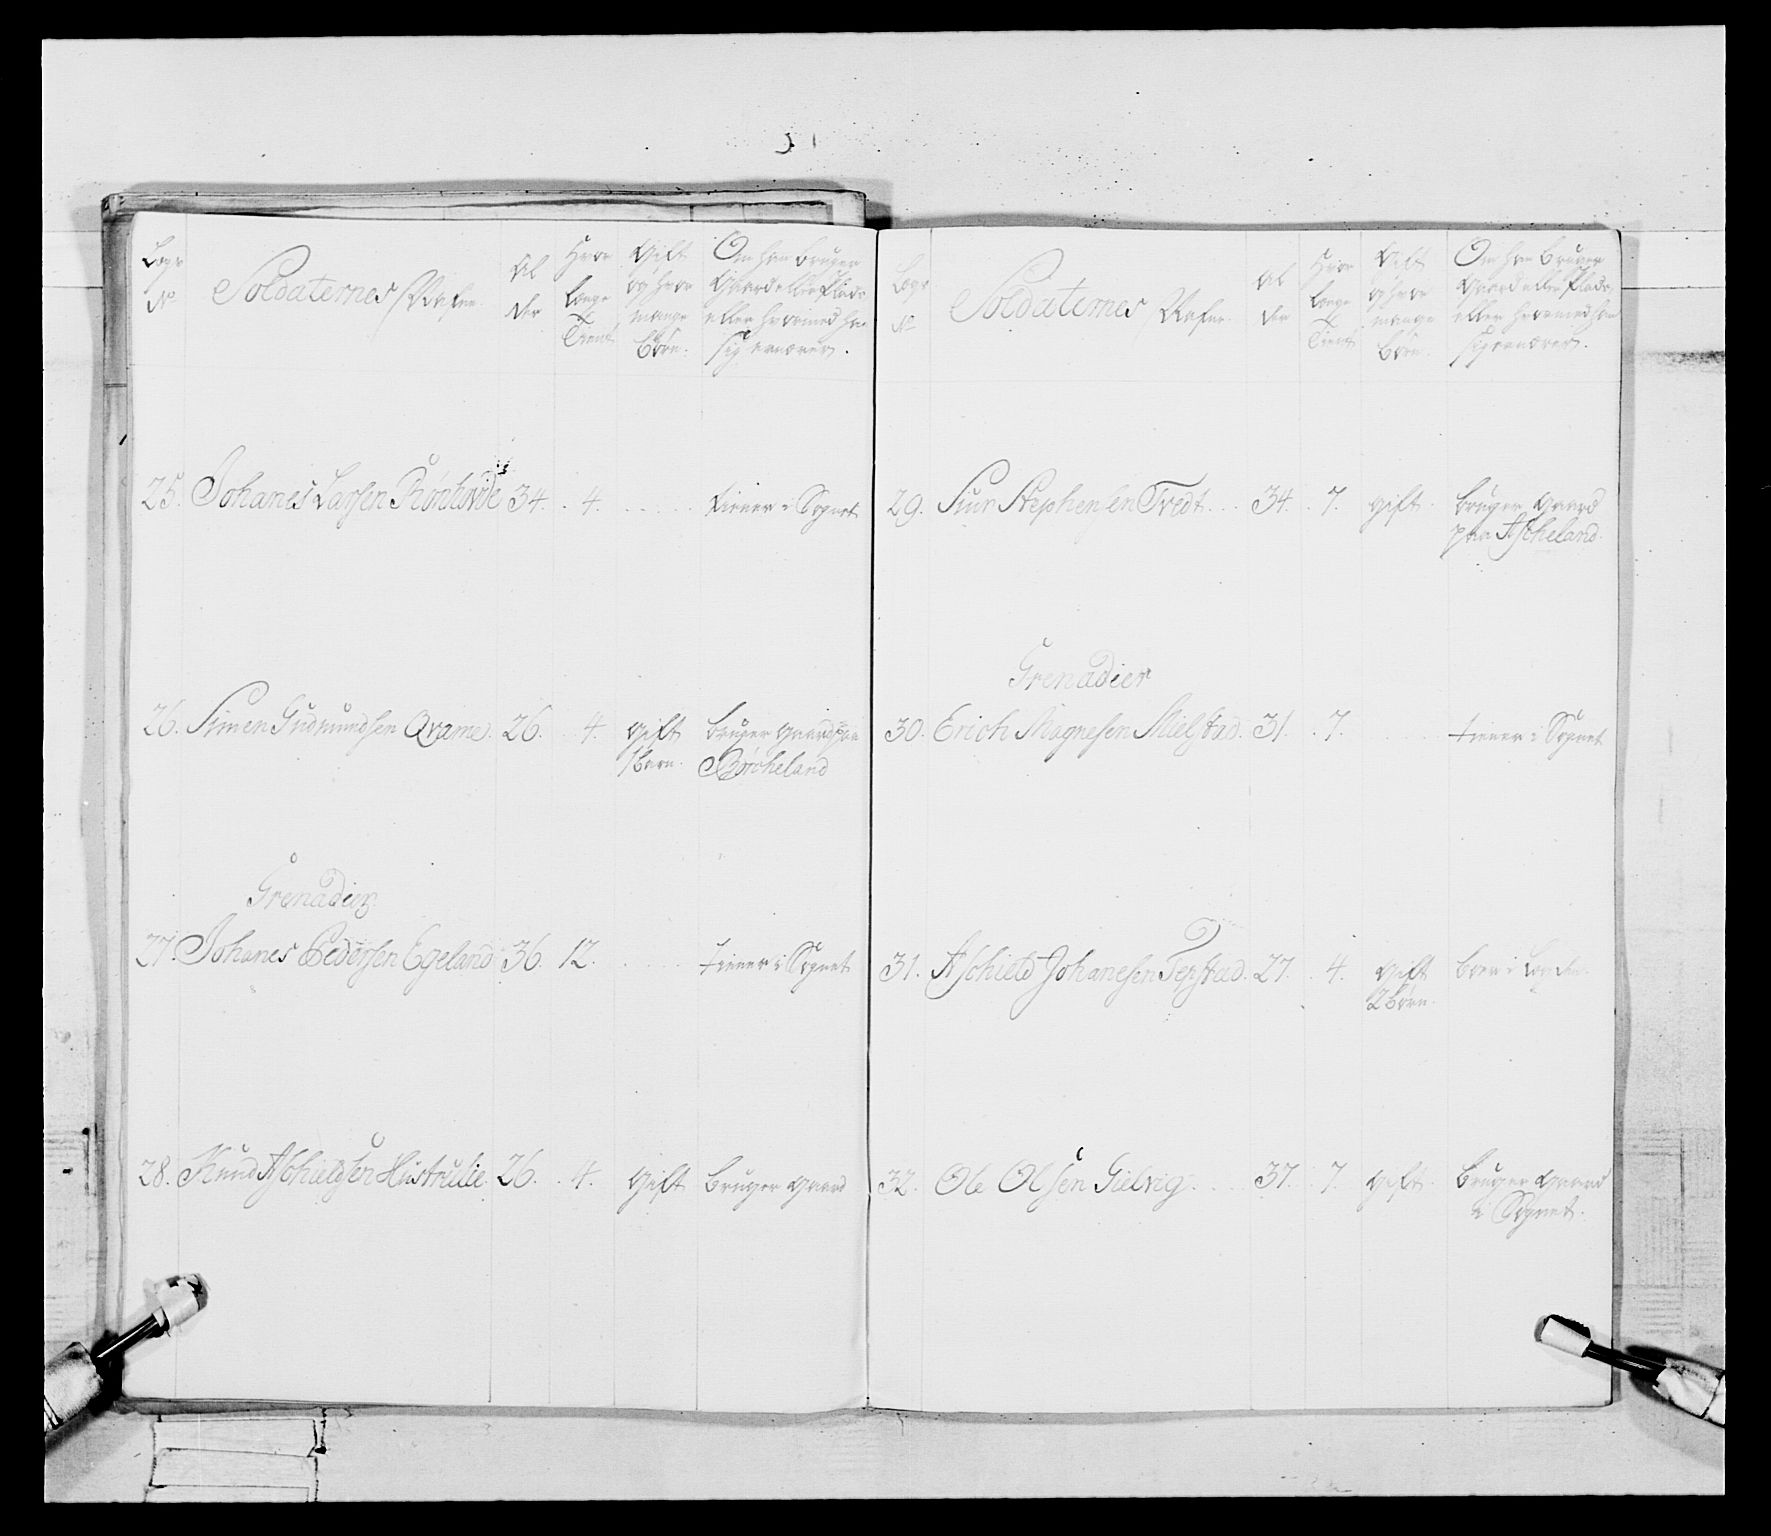 Lægs
No
Soldaternes Nafne
Al
der
Hvor
længe
Tient
Gift
og hvor
mange
Børn.
Om han bruger
Gaard eller Plads
eller hvormed han
sig ernærer.
25. Johanes Larsen Rønhovde 34. 4. tiener i Sognet
26. Simen Gudmundsen Qvame. 26. 4. Gift bruger gaard paa
1 barn. Børcheland
Grenadier
27. Johanes Pedersen Egeland 36. 12. tiener i Sognet
28. Knud Aschieldsen Hustrulie 26. 4. Gift bruger gaard
Lægs
No
Soldaternes Nafne
Al
der
Hvor
længe
Tient
Gift
og hvor
mange
Børn.
Om han bruger
Gaard eller Plads
eller hvormed han
sig ernærer.
29. Siur Stephensen Tvedt 34. 7. gift bruger gaard
paa Ascheland.
Grenadier
30. Erich Magnesen Mielstad. 31. 7. tiener i Sognet
31. Aschield Johanesen Terstad. 27. 4. Gift boer i
2 børn.
32. Ole Olsen Gielvig. 37. 7. gift. bruger gaard
i Sognet.